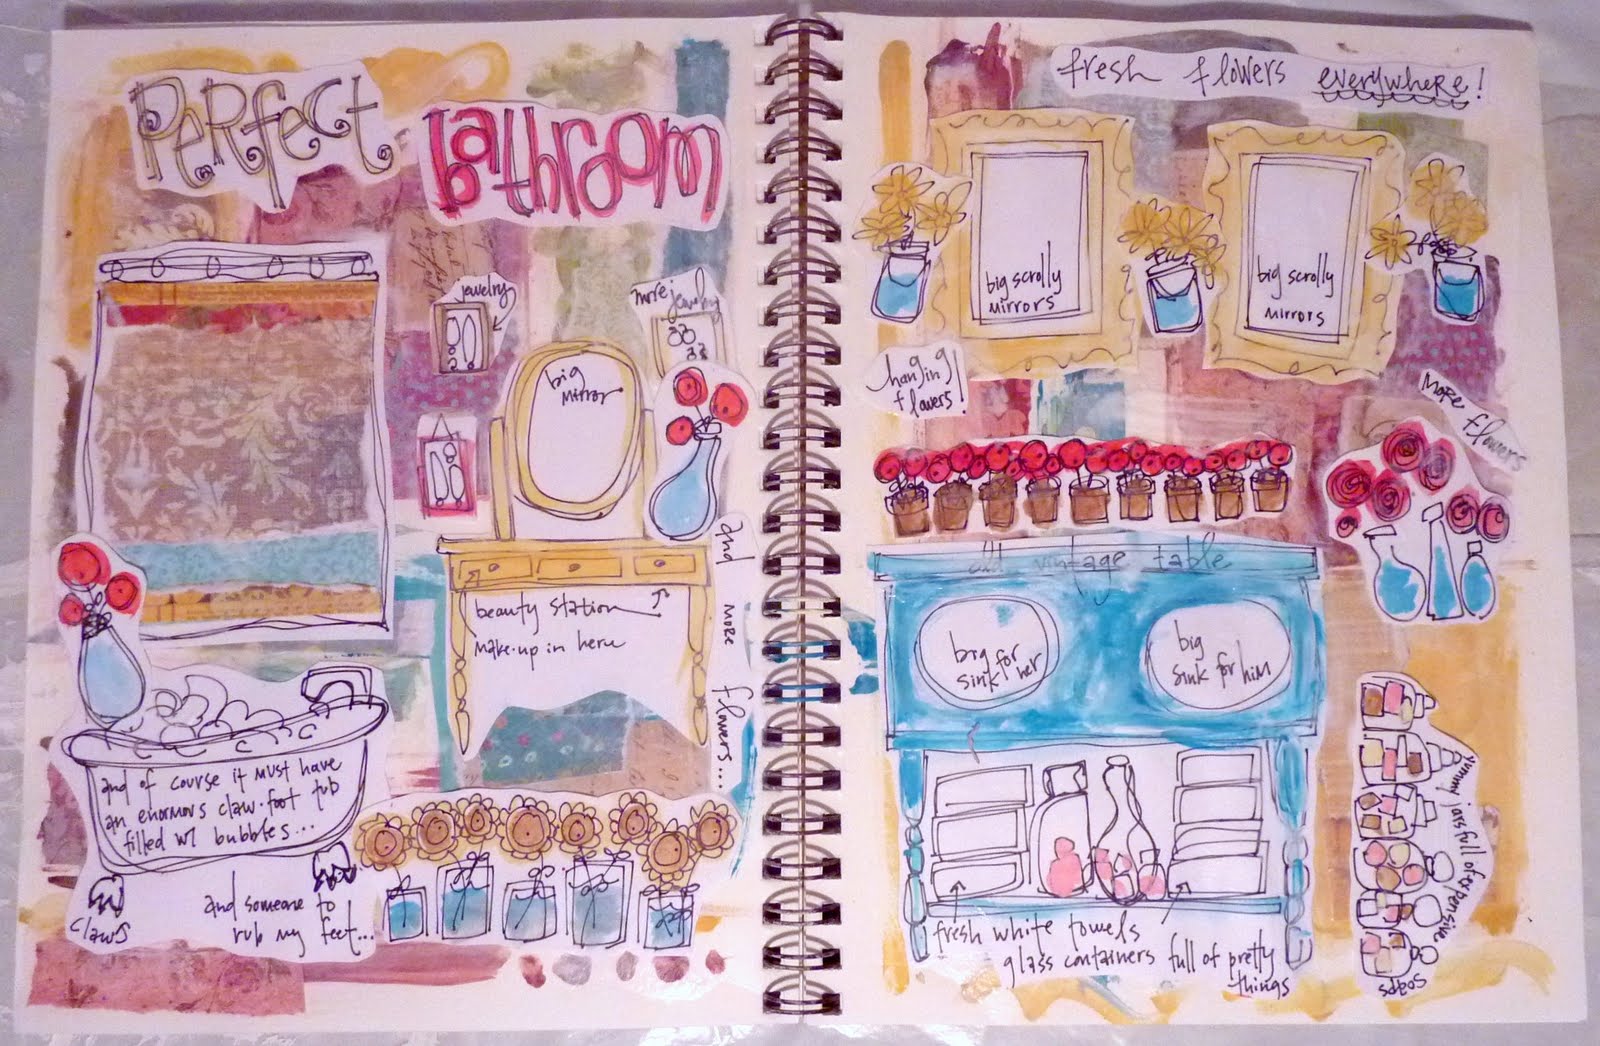 PERfect
bathroom
jewelry
more jewelry
big
mirror
beauty station
make-up in here
and more flowers...
and of course it must have
an enormous claw-foot tub
filled w/ bubbles...
claws
and someone to
rub my feet...
fresh flowers everywhere!
big scrolly
mirrors
big scrolly
mirrors
hanging
flowers!
more flowers
old vintage table
big
sink for her
big
sink for him
fresh white towels
glass containers full of pretty
things
yummy jars full of expensive
soaps